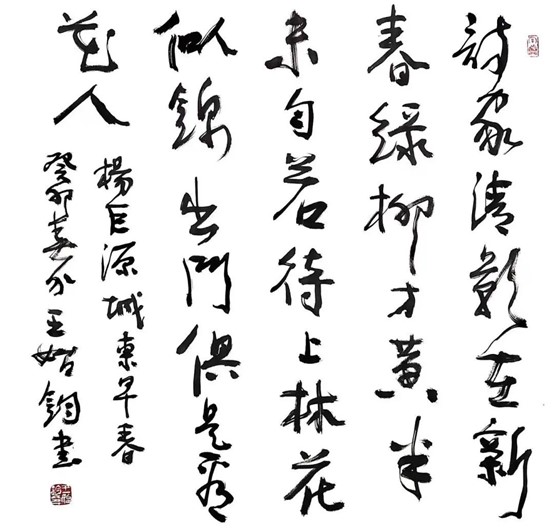 詩家清影在新
春綠柳才黃半
未勻若待上林花
似錦出門俱是看
花人
楊巨源城東早春
癸卯春分王鈞書